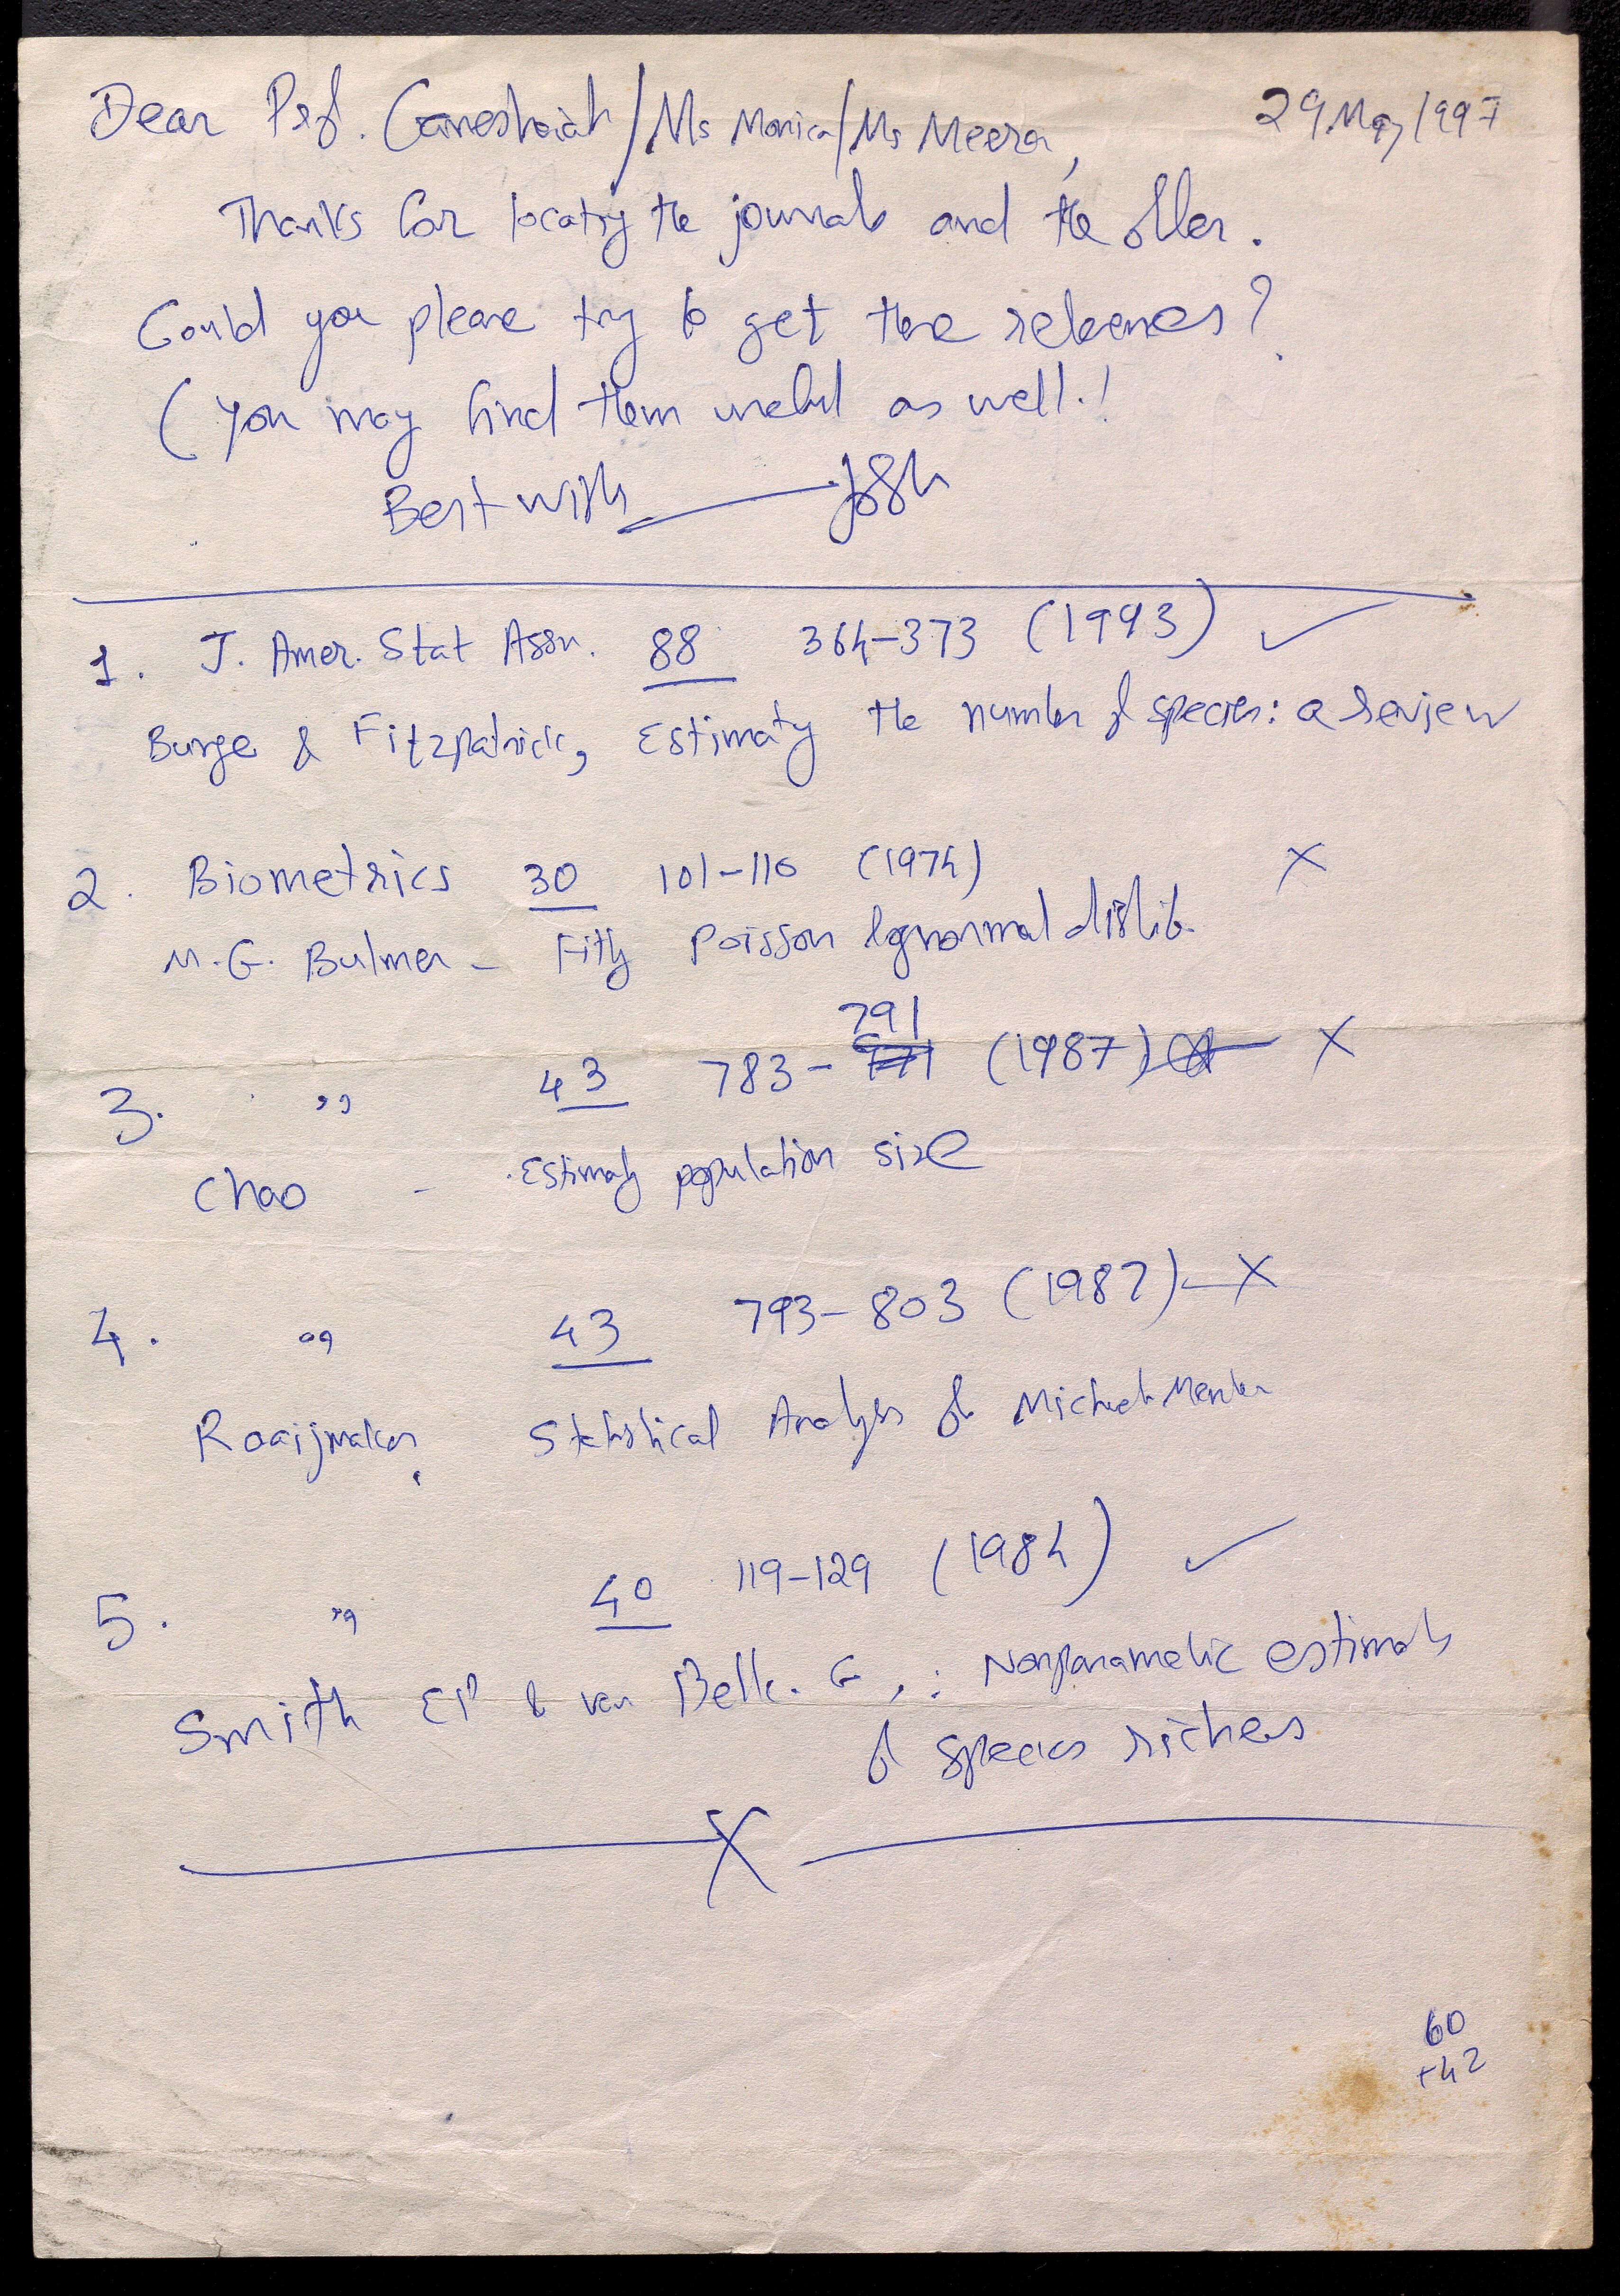 Dear Prof. Ganeshaiah/Ms Monica/Ms Meera, 29 May 1997
Thanks for locating the journals and the offer.
Could you please try to get these references?
(You may find them useful as well.!
Best wishes
1. J. Amer. Stat Assn. 88 364-373 (1993) ✓
Bunge & Fitzpatrick, Estimating the number of species: a review
2. Biometrics 30 101-110 (1974) X
M.G. Bulmer - Fitting Poisson lognormal distrib.
3. ,, 43 783-791 (1987) X
Chao - Estimating population size
4. ,, 43 793-803 (1987) - X
Raaijmakers, Statistical Analysis of Michaelis Menten
5. ,, 40 119-129 (1984) ✓
Smith EP & van Belle. G,: Nonparametric estimates
of species richness
X
60
+42